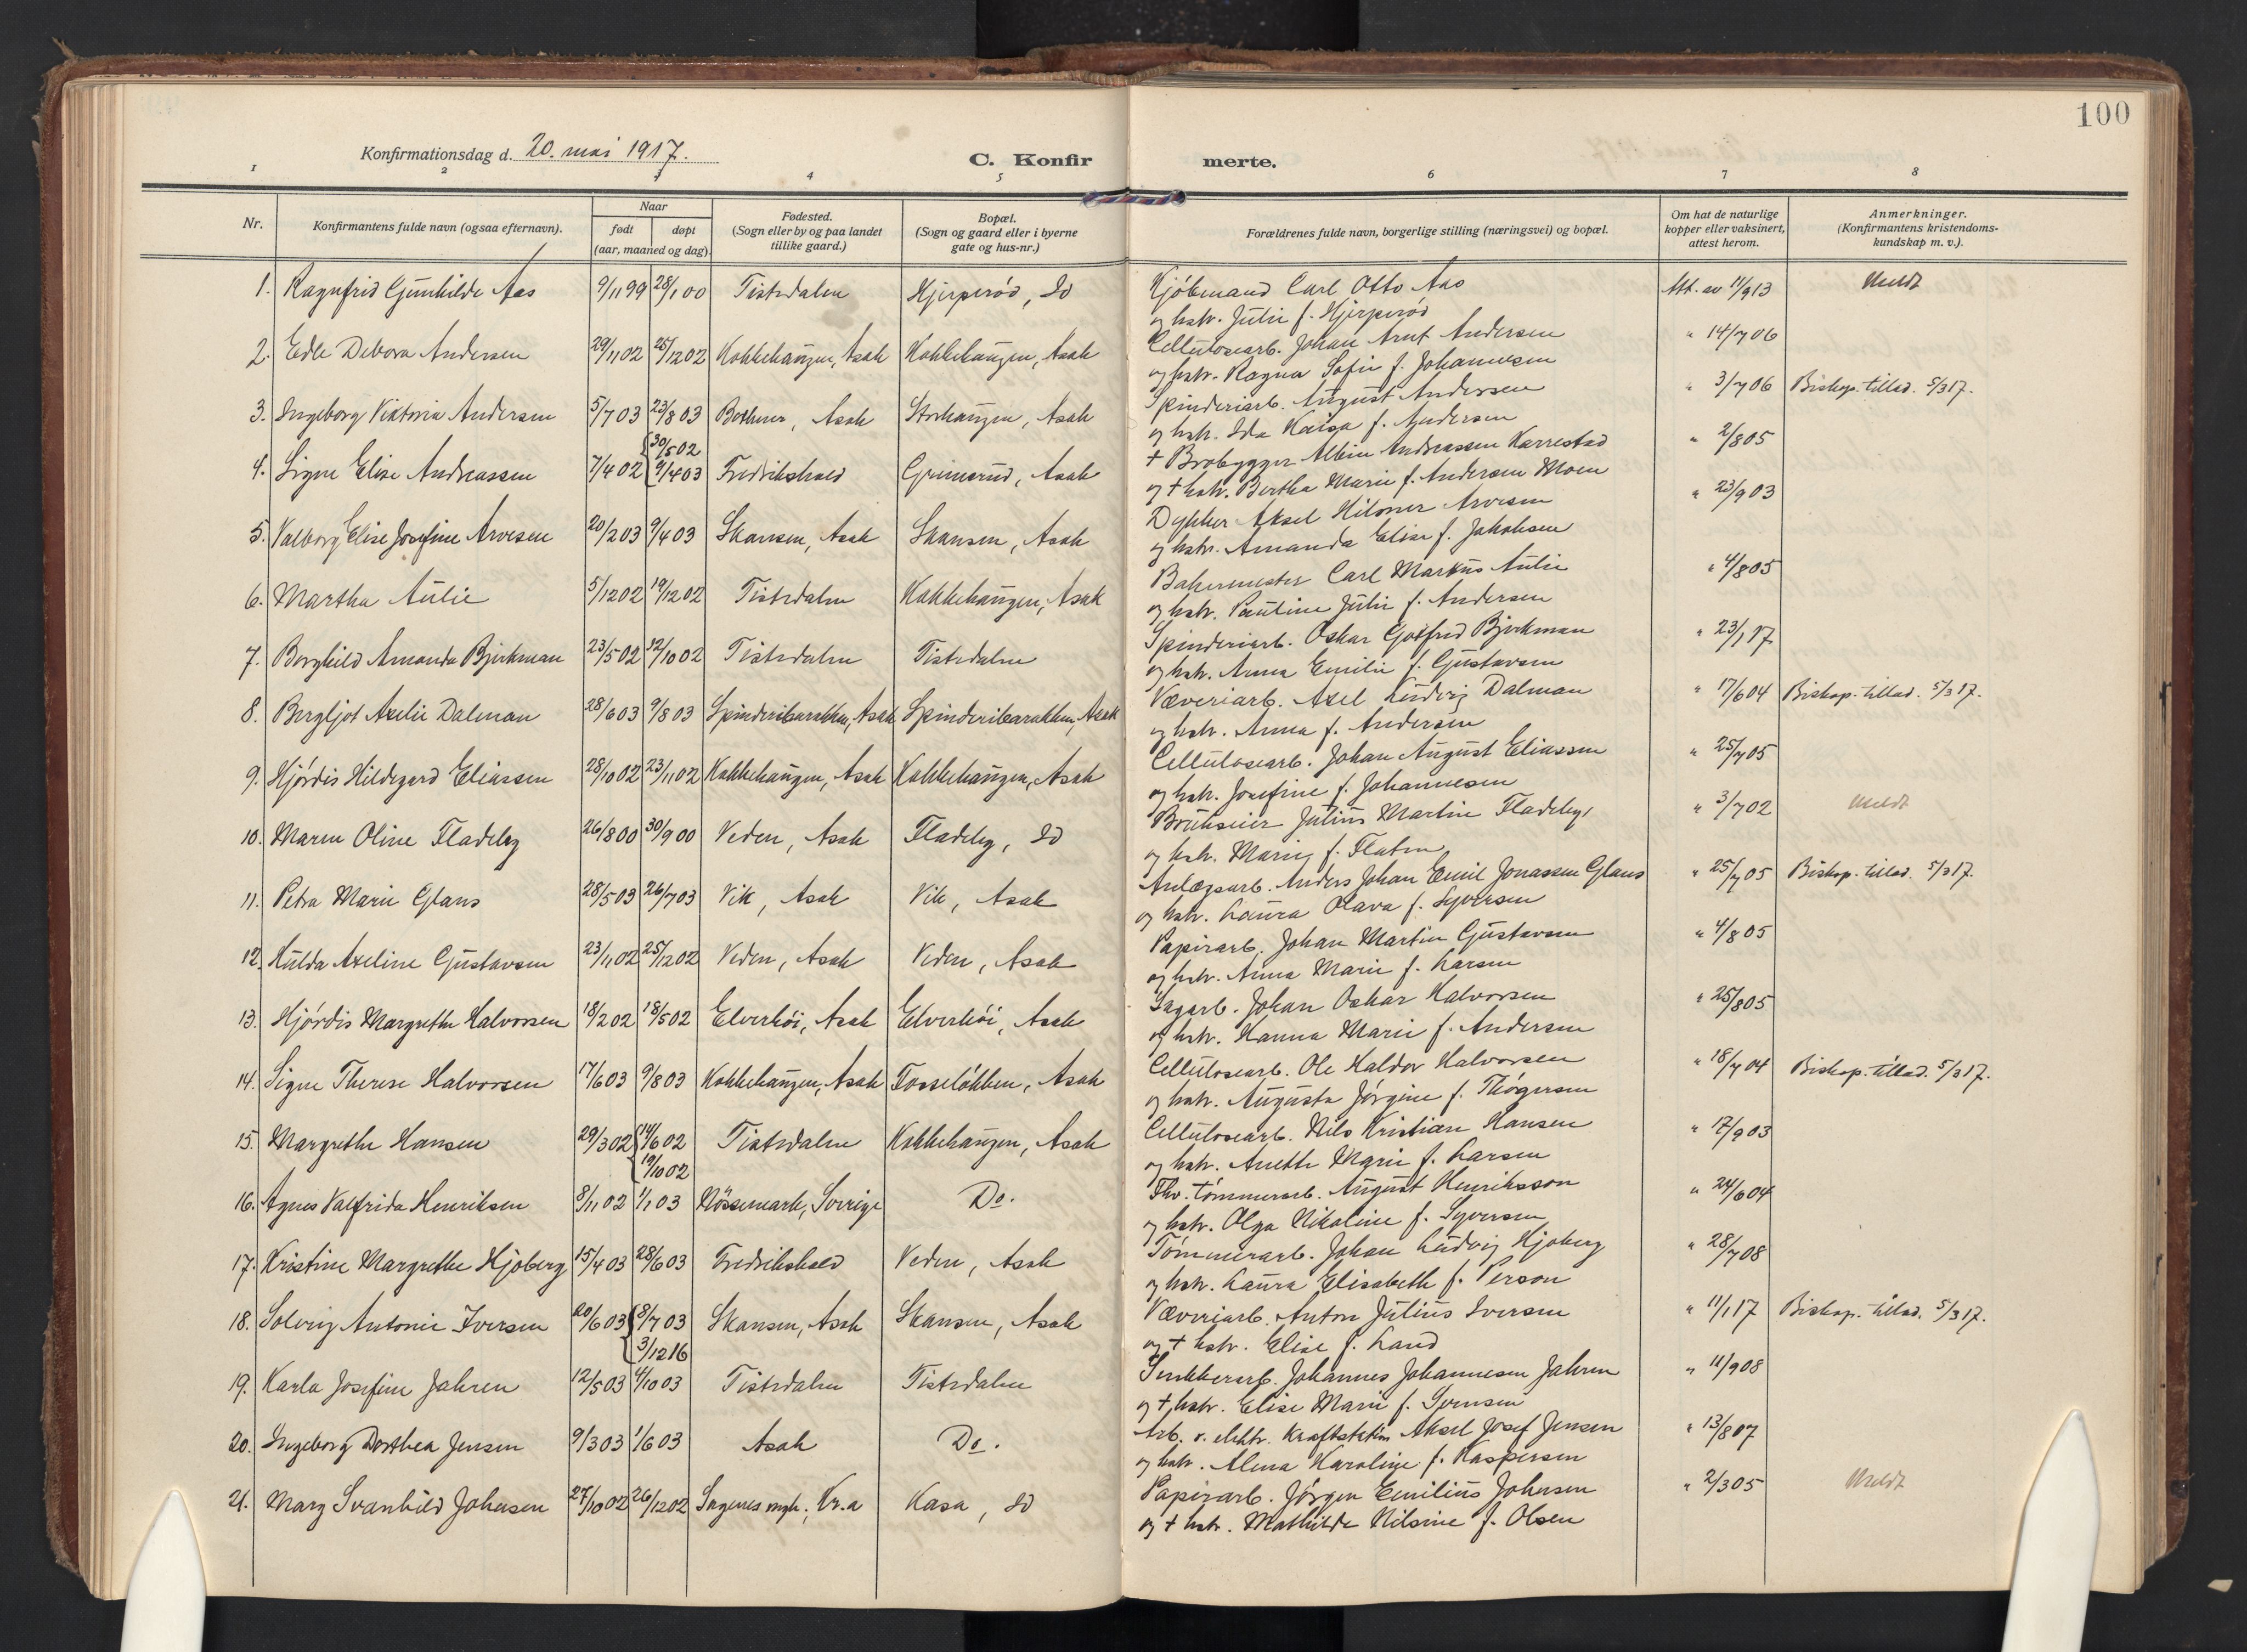 100
Konfirmationsdag d. 20. mai 1917.
C. Konfir
merte.
1 2 3 4 5 6 7 8
Nr.
Konfirmantens fulde navn (ogsaa efternavn).
Naar
født
døpt
(aar, maaned og dag).
Fødested.
(Sogn eller by og paa landet
tillike gaard.)
Bopæl.
(Sogn og gaard eller i byerne
gate og hus-nr.)
Forældrenes fulde navn, borgerlige stilling (næringsvei) og bopæl.
Om hat de naturlige
kopper eller vaksinert,
attest herom.
Anmerkninger.
(Konfirmantens kristendoms-
kundskap m. v.).
1. Ragnfrid Gunhilde Aas 9/11 99 28/1 00 Tistedalen Hjerperød, Id Kjöbmand Carl Otto Aas Att. av 11/9 13 Meldt
og hstr. Julie f. Hjerperød
2. Edle Debora Andersen 29/11 02 25/12 02 Kokkehaugen, Asak Kokkehaugen, Asak Cellulosearb. Johan Arnt Andersen " 14/7 06
og hstr. Ragna Sofie f. Johannesen
3. Ingeborg Viktoria Andersen 5/7 03 23/8 03 Bothner, Asak Storhaugen, Asak Spinderiarb. August Andersen " 3/7 06 Biskop. tillad. 5/3 17.
og hstr. Ida Kaisa f. Andersen
4. Signe Elise Andreassen 7/4 02 {30/5 02 9/4 03 Fredrikshald Grimsrud, Asak + Brobygger Albin Andreassen Karrestad " 2/8 05
og + hstr. Bertha Marie f. Andersen Moen
5. Valborg Elise Josefine Arvesen 20/2 03 9/4 03 Skansen, Asak Skansen, Asak Dykker Aksel Hilmer Arvesen " 23/9 03
og hstr. Amanda Elise f. Jakobsen
6. Martha Aulie 5/12 02 19/12 02 Tistedalen Kokkehaugen, Asak Bakermester Carl Markus Aulie " 4/8 05
og hstr. Pauline Julie f. Andersen
7. Borghild Amanda Bjerkman 23/5 02 12/10 02 Tistedalen Tistedalen Spinderiarb. Oskar Gotfred Bjerkman " 23/1 17
og hstr. Anna Emilie f. Gustavsen
8. Bergljot Axelie Dalman 28/6 03 9/8 03 Spinderibarakken, Asak Spinderibarakken, Asak Væveriarb. Axel Ludvig Dalman " 17/6 04 Biskop. tillad. 5/3 17.
og hstr. Anna f. Andersen
9. Hjördis Hildegard Eliassen 28/10 02 23/11 02 Kokkehaugen, Asak Kokkehaugen, Asak Cellulosearb. Johan August Eliassen " 25/7 05
og hstr. Josefine f. Johannesen
10. Maren Oline Fladeby 26/8 00 30/9 00 Veden, Asak Fladeby, Id Brukseier Julius Martin Fladeby, " 3/7 02 Meldt
og hstr. Marie f. Flaten
11. Petra Marie Glans 28/5 03 26/7 03 Vik, Asak Vik, Asak Anlægsarb. Anders Johan Emil Jonassen Glans " 25/7 05 Biskop. tillad. 5/3 17.
og hstr. Laura Olava f. Syversen
12. Hulda Axeline Gustavsen 23/11 02 25/12 02 Veden, Asak Veden, Asak Papirarb. Johan Martin Gustavsen " 4/8 05
og hstr. Anna Marie f. Larsen
13. Hjördis Margrethe Halvorsen 18/2 02 18/5 02 Elverhöi, Asak Elverhöi, Asak Sagarb. Johan Oskar Halvorsen " 25/8 05
og hstr. Hanna Marie f. Andersen
14. Signe Therese Halvorsen 17/6 03 9/8 03 Kokkehaugen, Asak Fosseløkken, Asak Cellulosearb. Ole Haldor Halvorsen " 18/7 04 Biskop. tillad. 5/3 17.
og hstr. Augusta Jörgine f. Thögersen
15. Margrethe Hansen 29/3 02 {14/6 02 19/10 02 Tistedalen Kokkehaugen, Asak Cellulosearb. Nils Kristian Hansen " 17/9 03
og hstr. Anette Marie f. Larsen
16. Agnes Valfrida Henriksen 8/11 02 1/1 03 Nössemark, Sverige Do. Fhv. tömmerarb. August Henriksson " 24/6 04
og hstr. Olga Nikoline f. Syversen
17. Kristine Margrethe Hjoberg 15/4 03 28/6 03 Fredrikshald Veden, Asak Tömmerarb. Johan Ludvig Hjoberg " 28/7 08
og hstr. Laura Elisabeth f. Person
18. Solveig Antonie Iversen 20/6 03 {8/7 03 3/12 16 Skansen, Asak Skansen, Asak Væveriarb. Anton Julius Iversen " 11/1 17 Biskop. tillad. 5/3 17.
og + hstr. Elise f. Land
19. Karla Josefine Jahren 12/5 03 4/10 03 Tistedalen Tistedalen Snekkerarb. Johannes Johannesen Jahren " 11/9 08
og + hstr. Elise Marie f. Svensen
20. Ingeborg Dorthea Jensen 9/3 03 1/6 03 Asak Do. Arb. v. elektr. Kraftstation Aksel Josef Jensen " 13/8 07
og hstr. Alma Karoline f. Kaspersen
21. Mary Svanhild Johnsen 27/10 02 26/12 02 Sagenes mgh., Kr.a Kasa, Id Papirarb. Jörgen Emilius Johnsen " 2/3 05 Meldt
og + hstr. Mathilde Nilsine f. Olsen